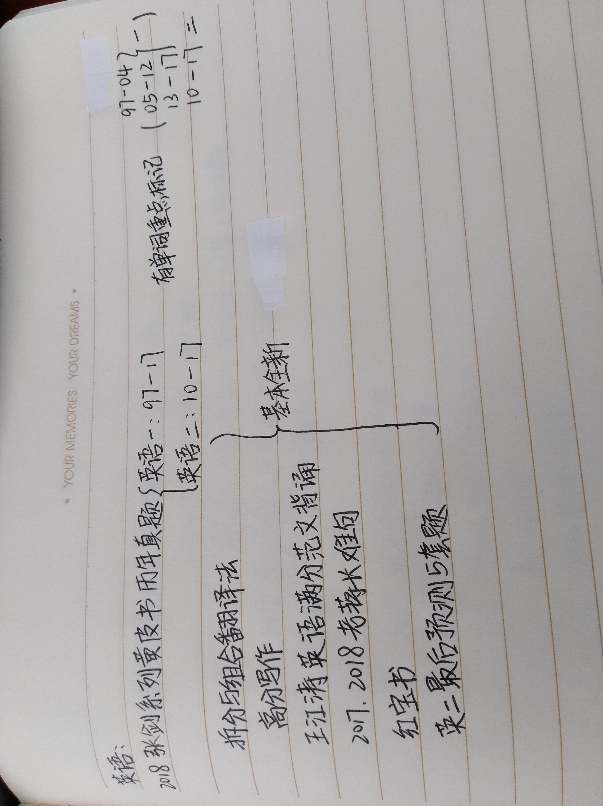 • YOUR MEMORIES YOUR DREAMS •
英语:
2018 张剑系列黄皮书历年真题 { 英语一: 97-17
英语二: 10-17
有单词重点标记
( 97-04
05-12
13-17 } 一 )
10-17 二
拆分与组合翻译法
高分写作
王江涛英语满分范文背诵
2017. 2018 考研长难句
红宝书
英二最后预测5套题
} 基本全新